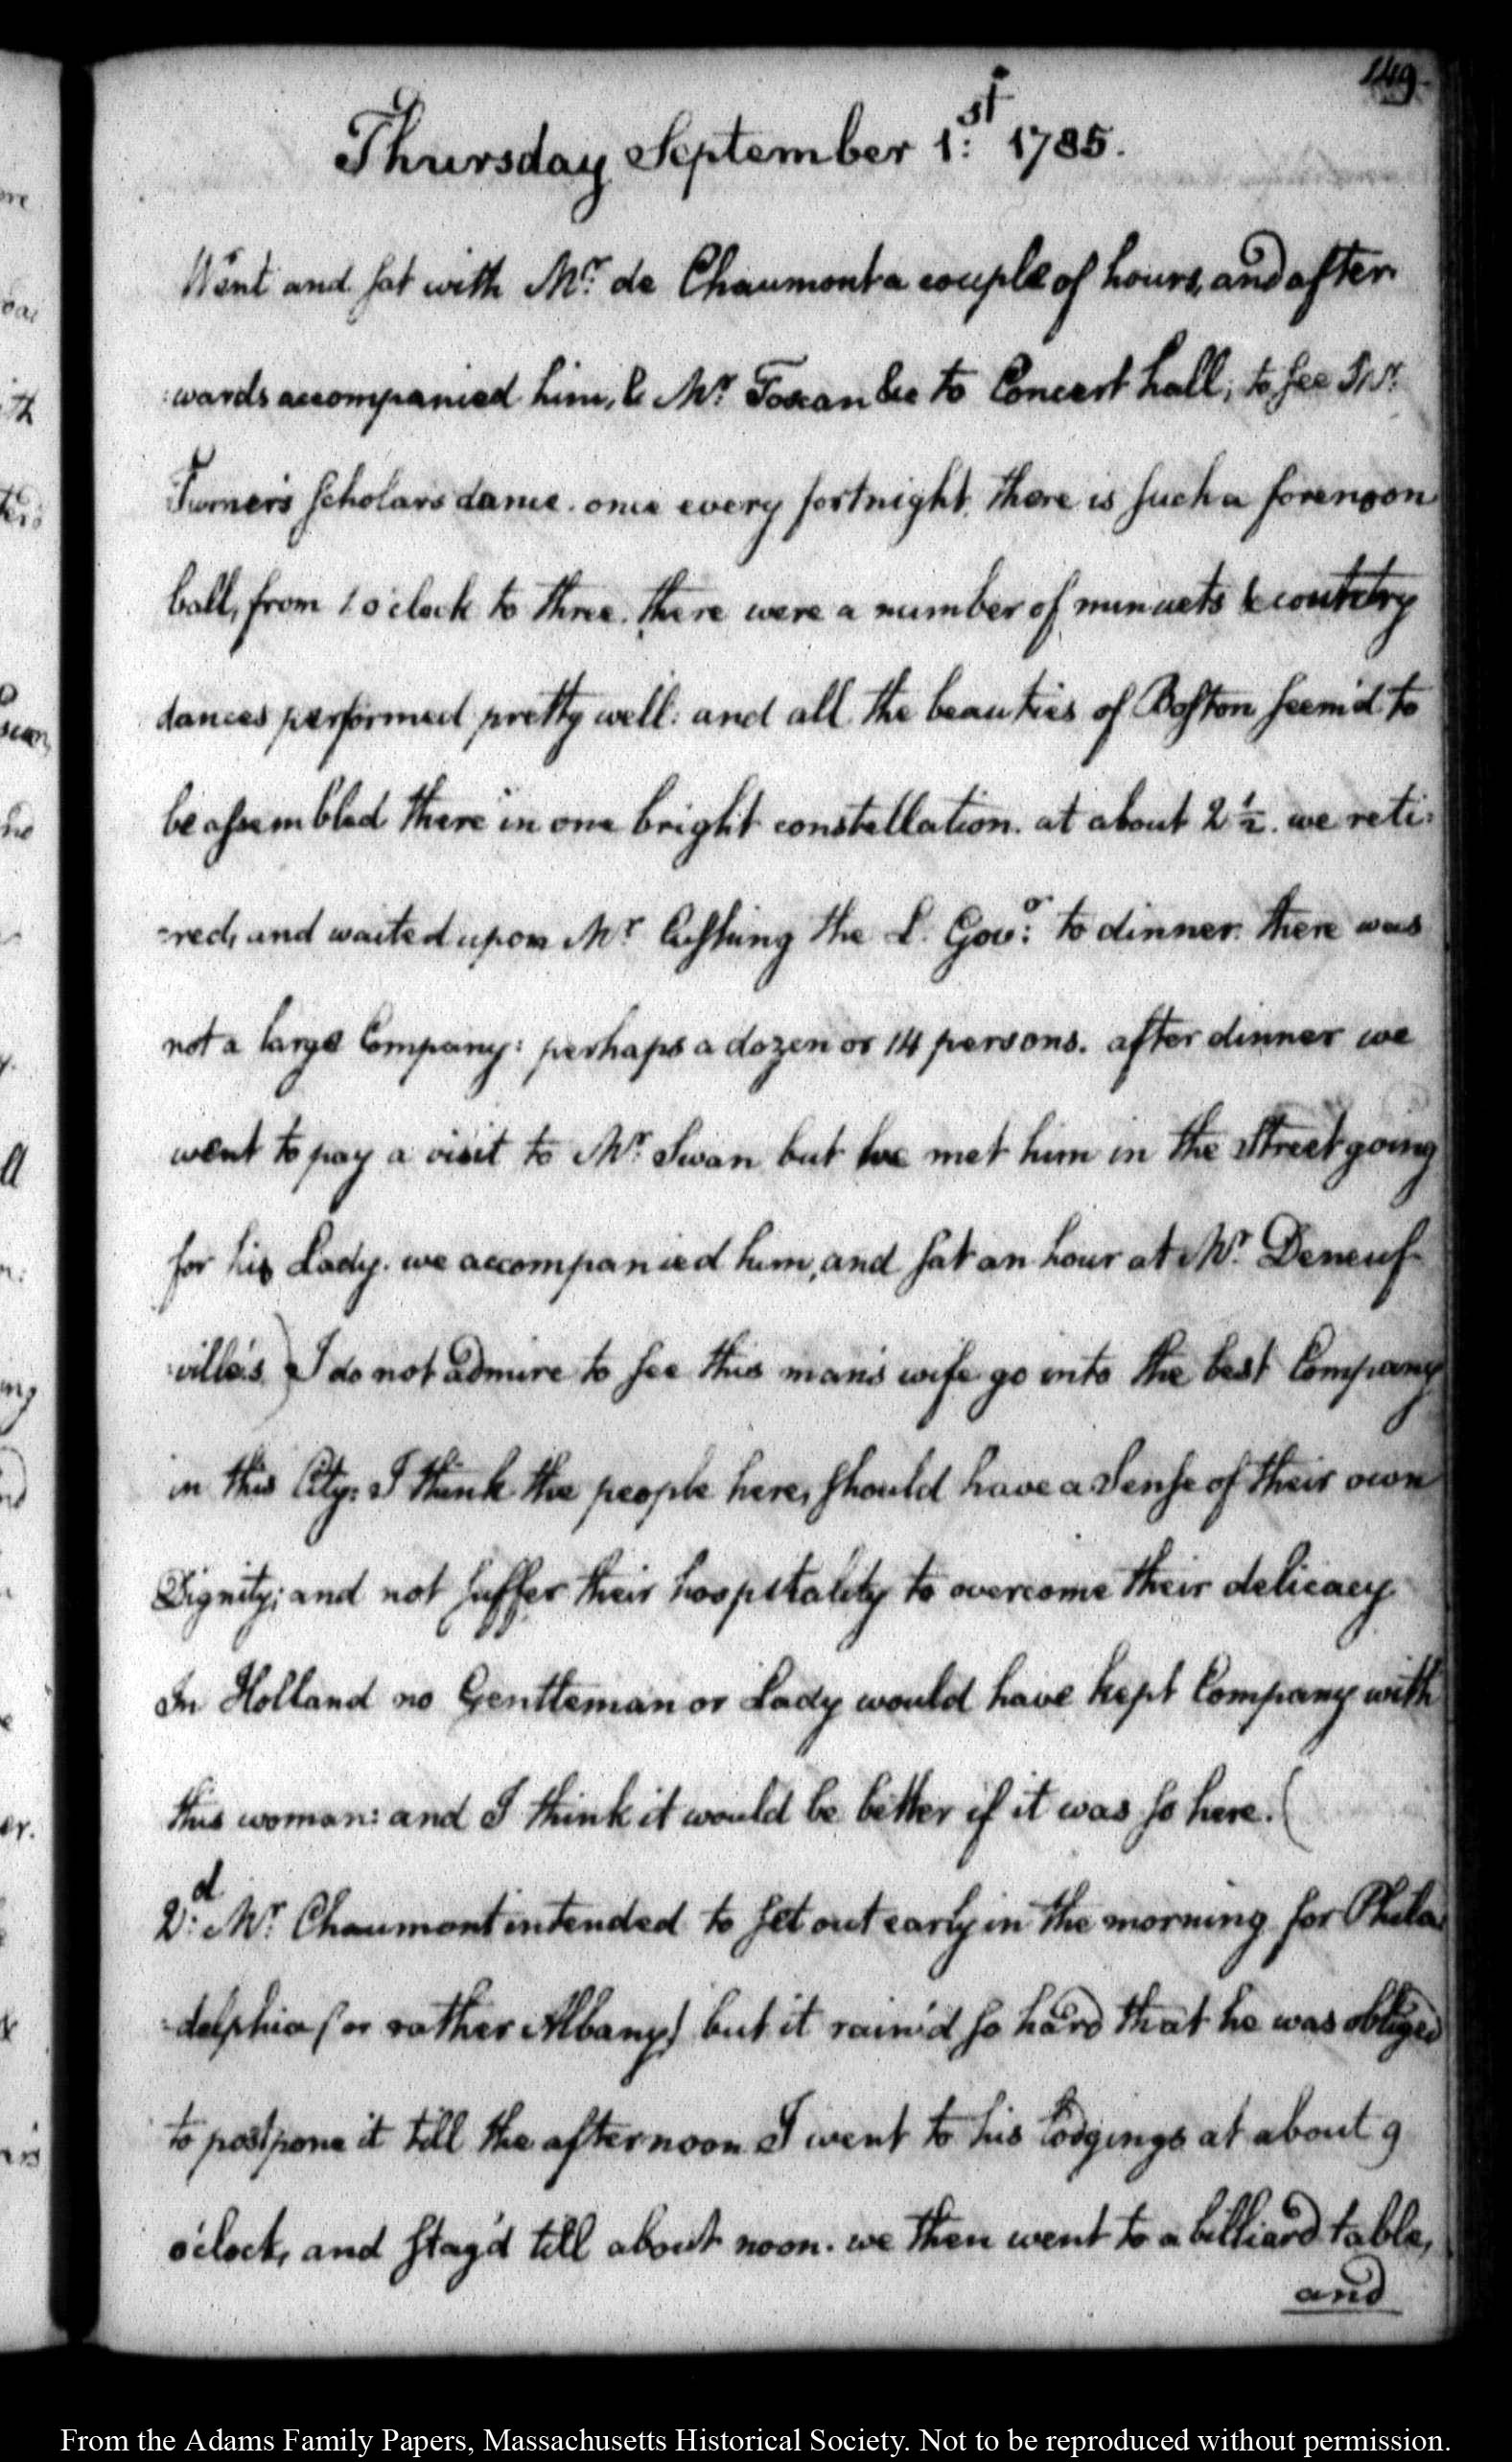 149
Thursday September 1:st 1785.
Went and sat with Mr: de Chaumont a couple of hours, and after
:wards accompanied him, & Mr Toscan &c to Concert hall; to see Mr:
Turner's scholars dance. once every fortnight, there is such a forenoon
ball, from 1 o'clock to three. there were a number of minuets & country
dances performed pretty well: and all the beauties of Boston seem'd to
be assembled there in one bright constellation. at about 2 1/2. we reti:
:red, and waited upon Mr Cushing the L. Gov:r to dinner. there was
not a large Company: perhaps a dozen or 14 persons. after dinner we
went to pay a visit to Mr: Swan but we met him in the Street going
for his Lady. we accompanied him, and sat an hour at Mr. Deneuf
:ville's) I do not admire to see this man's wife go into the best Company
in this City: I think the people here, should have a Sense of their own
Dignity; and not suffer their hospitality to overcome their delicacy.
In Holland no Gentleman or Lady would have kept Company with
this woman: and I think it would be better if it was so here. (
2:d Mr Chaumont intended to set out early in the morning for Phila:
:delphia (or rather Albany) but it rain'd so hard that he was obliged
to postpone it till the afternoon. I went to his lodgings at about 9
o'clock, and stay'd till about noon. we then went to a billiard table,
and
From the Adams Family Papers, Massachusetts Historical Society. Not to be reproduced without permission.